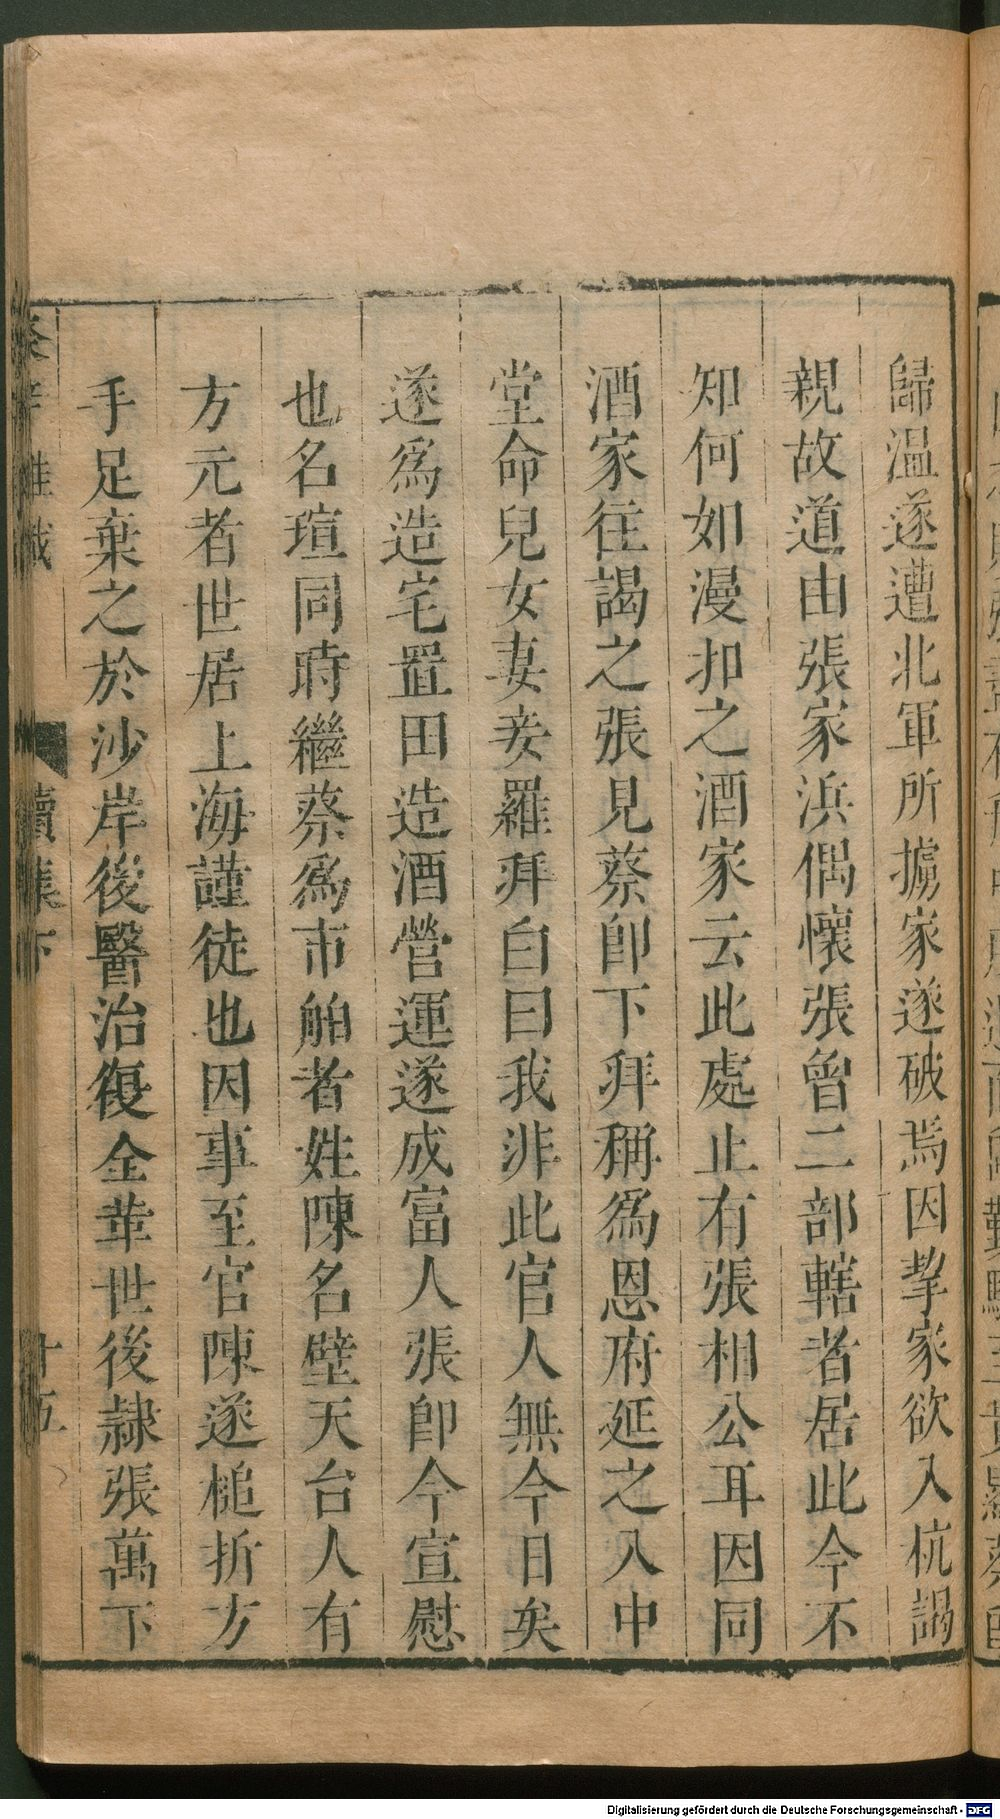 歸温遂遭北軍所擄家遂破焉因挈家欲入杭謁
親故道由張家浜偶懷張曾二部轄者居此今不
知何如漫扣之酒家云此處止有張相公耳因同
酒家往謁之張見蔡卽下拜稱爲恩府延之入中
堂命兒女妻妾羅拜白曰我非此官人無今日矣
遂爲造宅置田造酒營運遂成富人張卽今宣慰
也名瑄同時繼蔡爲市舶者姓陳名壁天台人有
方元者世居上海謹徒也因事至官陳遂槌折方
手足棄之於沙岸後醫治復全革世後隷張萬下
癸辛雜識
續集下
十五
Digitalisierung gefördert durch die Deutsche Forschungsgemeinschaft - DFG